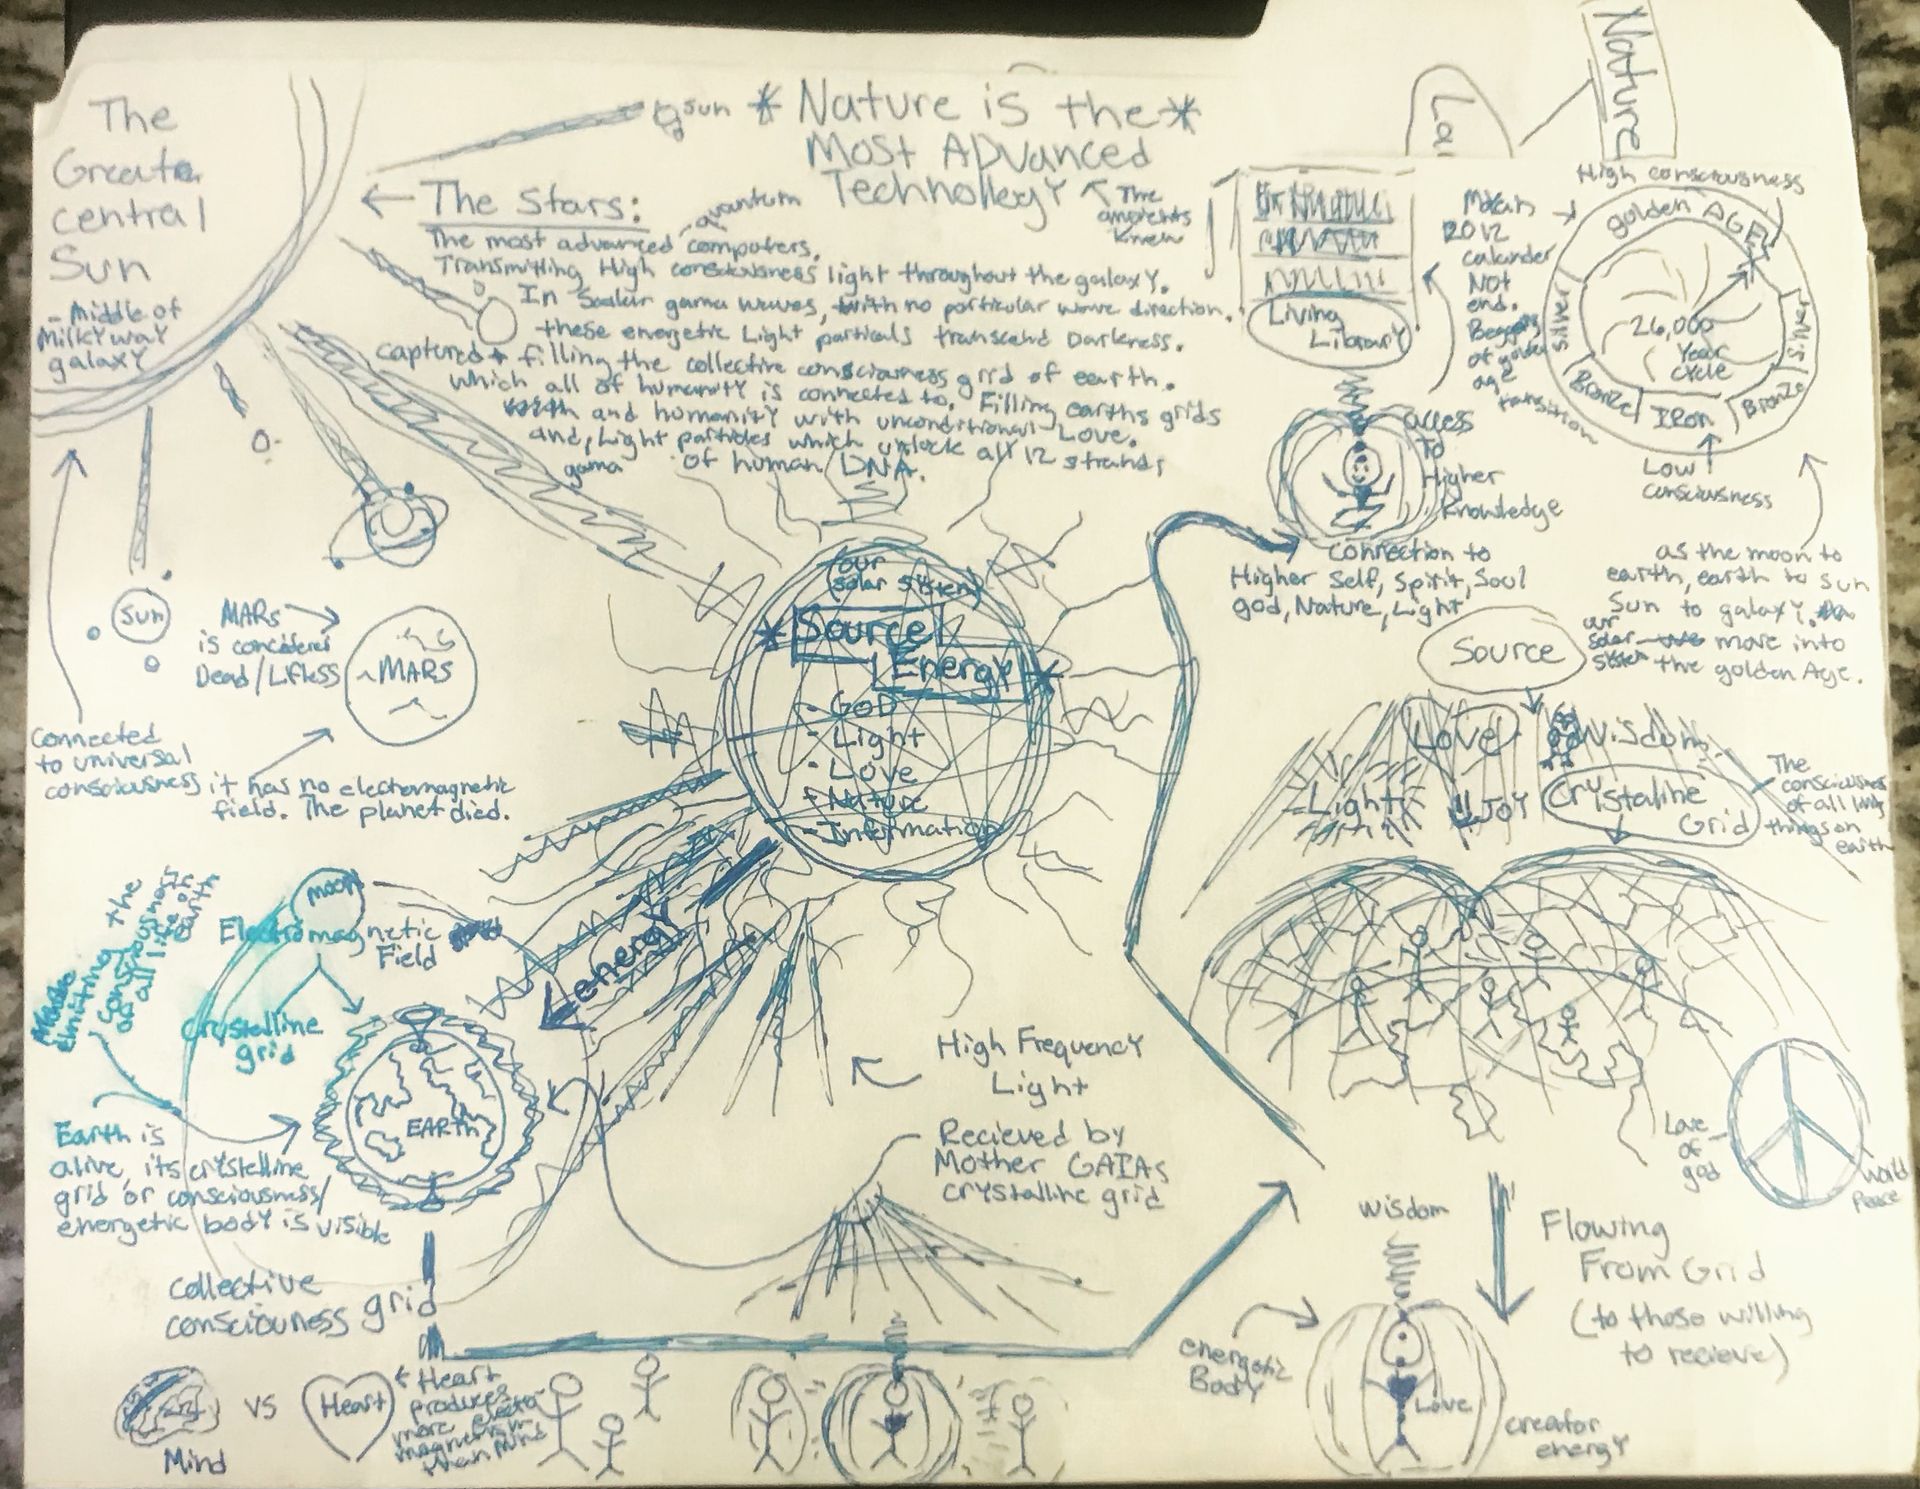 The
Greater
central
Sun
- Middle of
Milky way
galaxy
sun
* Nature is the *
Most ADvanced
Technology
← The
ancients
knew
← The Stars:
quantum
The most advanced computers.
Transmitting High consciousness light throughout the galaxy.
In Scalar gama waves, with no particular wave direction.
these energetic Light particals transcend Darkness.
captured + filling the collective consciousness grid of earth.
which all of humanity is connected to. Filling earths grids
and humanity with unconditional Love.
and, Light particles which unlock all 12 strands
gama
of human DNA.
Nature
La
Living
Library
Mayan
2012
calander
Not
end.
of golden
age
transition
High consciousness
golden AGE
silver
silver
Bronze
IRon
Bronze
26,000
Year
cycle
Low
consciousness
access
To
Higher
Knowledge
Connection to
Higher Self, Spirit, Soul
god, Nature, Light
as the moon to
earth, earth to sun
Sun to galaxy.
our
solar
move into
the golden Age.
Sun
MARs
is conciderer
Dead/Lifless
MARS
Connected
to universal
consciousness
it has no electromagnetic
field. The planet died.
(our
solar system)
* Source
Energy *
- GOD
- Light
- Love
- Nature
- Information
Source
Love
Wisdom
Light
JOY
Crystaline
Grid
The
consciousness
of all living
things on
earth
moon
Electromagnetic
Field
crystalline
grid
emitting the
consciousness
of all life on
earth
energy
EARTH
Earth is
alive, its crystelline
grid or consciousness/
energetic body is visible
High Frequency
Light
Recieved by
Mother GAIAs
crystalline grid
Love
of
god
world
Peace
collective
consciouness grid
wisdom
Flowing
From Grid
(to those willing
to recieve)
energetic
Body
Love
creator
energy
Mind
VS
Heart
Heart
produces
more electro-
magnetism
than mind